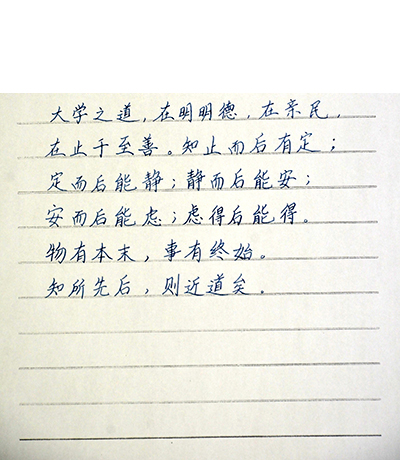 大学之道，在明明德，在亲民，
在止于至善。知止而后有定；
定而后能静；静而后能安；
安而后能虑；虑得后能得。
物有本末，事有终始。
知所先后，则近道矣.